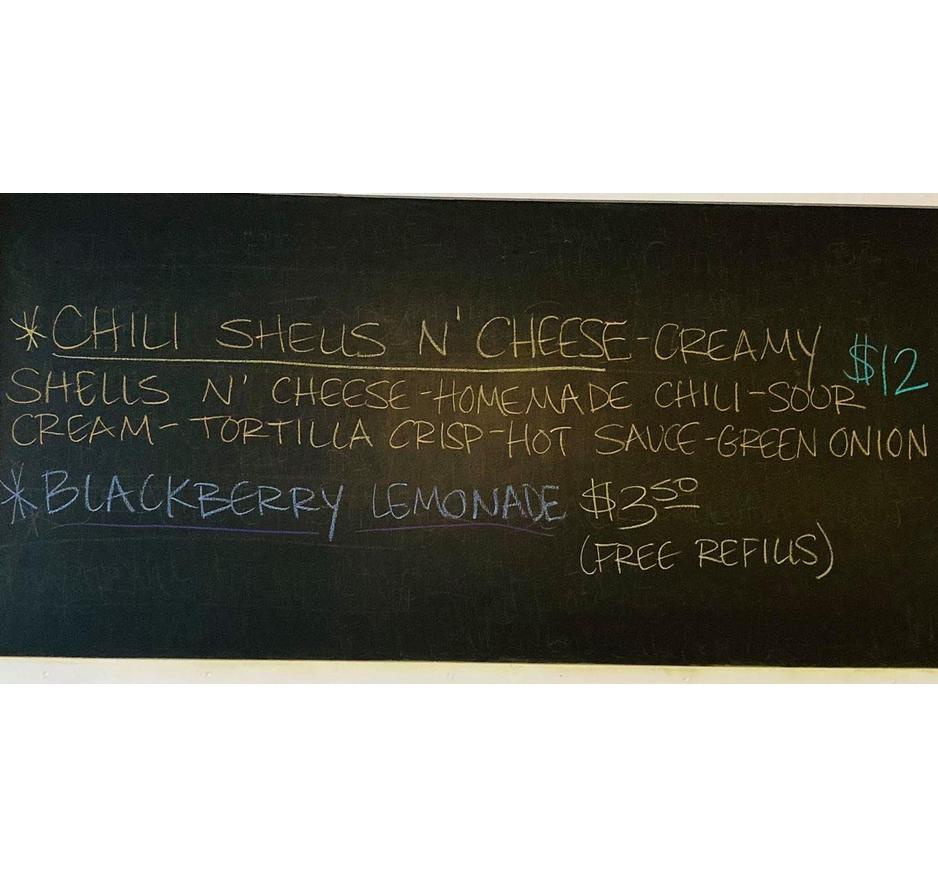 *CHILI SHELLS N' CHEESE-CREAMY $12
SHELLS N' CHEESE-HOMEMADE CHILI-SOUR
CREAM-TORTILLA CRISP-HOT SAUCE-GREEN ONION
*BLACKBERRY LEMONADE $3.50
(FREE REFILLS)